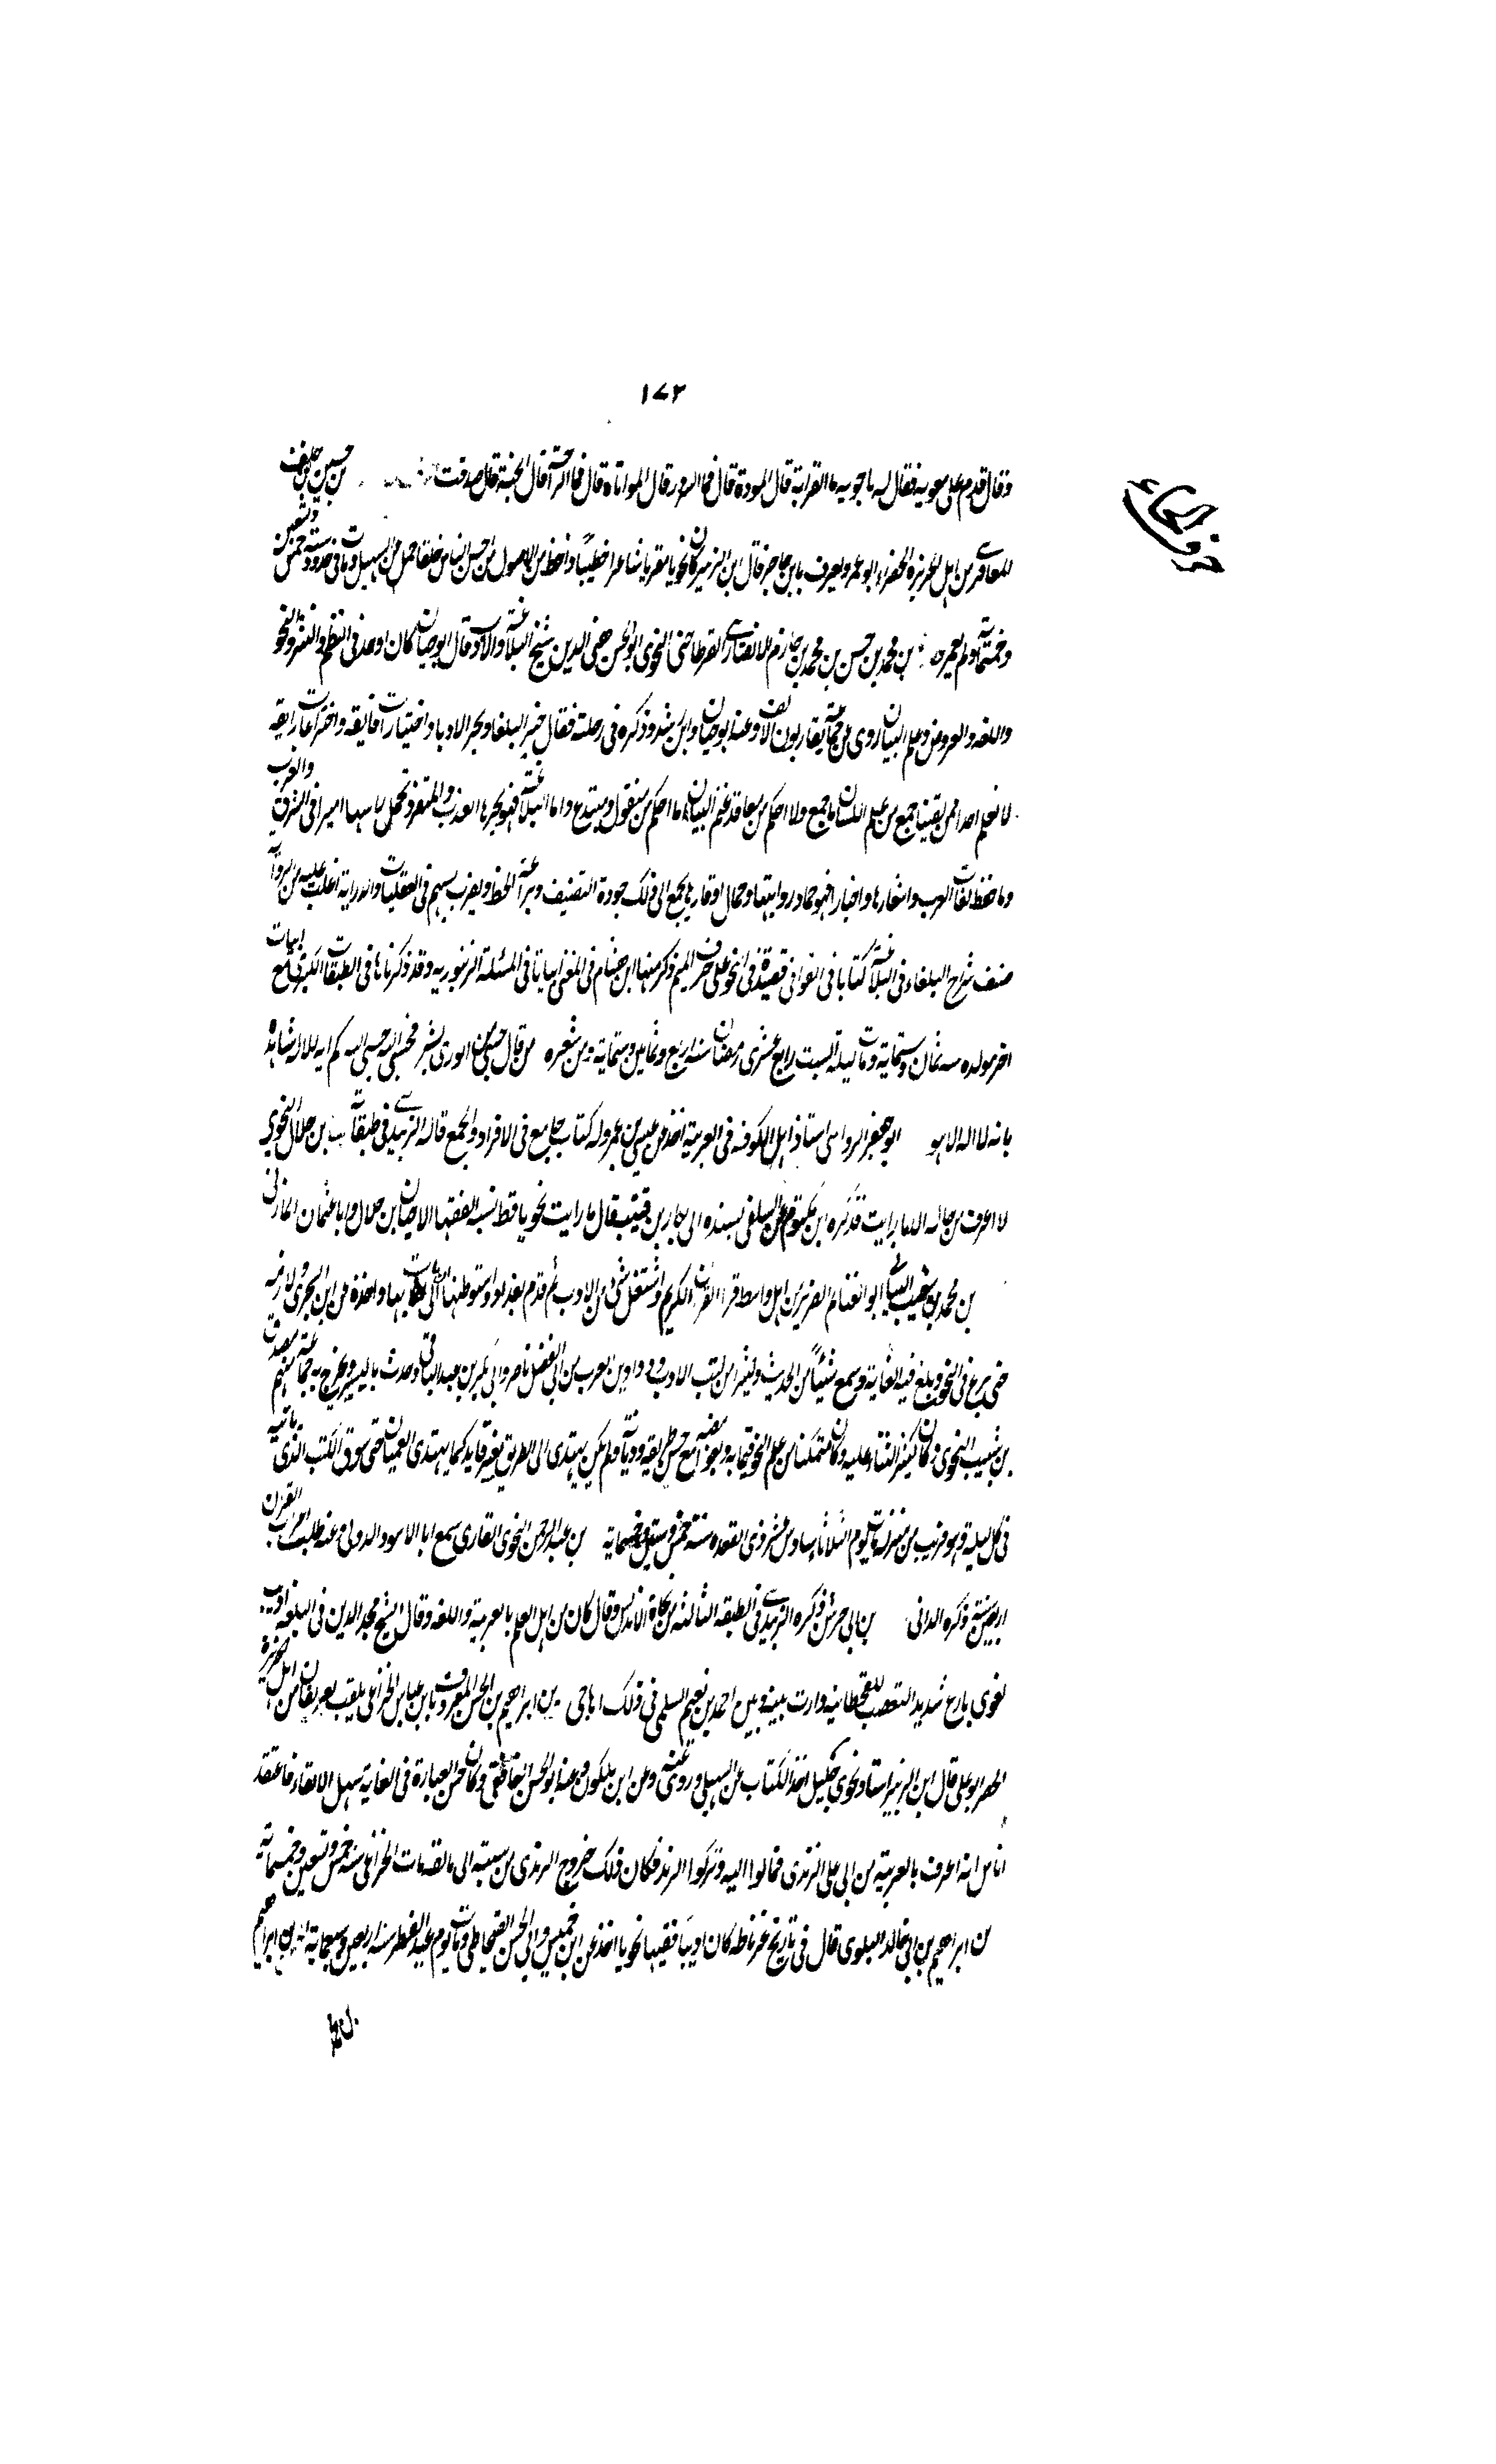 ١٧٣
وقال قدم على معويه فقال له يا جويه ما القرابة قال المودة قال فما السرور قال المواتاة قال فما الراحة قال الجنة قال صدقت بن حسين بن خلف
حرف الحاء
المعافرى من اهل الجزيرة الخضراء ابو عمر ويعرف بابن حاجز قال ابن الزبير كان نحويا مقريا شاعرا خطيبا واخذ من الاصول اخذ عن السهيلى ومات فى حدود سنة خمس وتسعين
وخمسماية ولم يعمر بن محمد بن حسن بن محمد بن حازم الانصارى القرطاجنى النحوى ابو الحسن هنى الدين شيخ البلاغة والادب وقال ابو حيان كان اوحد فى النظم والنثر والنحو
واللغه والعروض وعلم البيان روى عن جماعة يقاربون الالف وعنه ابو حيان وابن رشد وذكره فى رحلته فقال حبر البلغا وبحر الادبا ذو اختيارات فايقه واختراعات رايقه
لا نعلم احدا ممن لقينا جمع من علم اللسان ما جمع ولا احكم من معاقد علم البيان ما احكم من منقول ومبتدع واما البلاغة فهو بحرها العذب والمتفرد بحمل راسها اميرا فى الشرق والغرب
وما حفظ لغات العرب واشعارها واخبارها فهو حماد روايتها وحمال اوقارها يجمع الى ذلك جودة التصنيف وبراعة الخط ويضرب بسهم فى العقليات والدراية اغلب عليه من الرواية
صنف سراج البلغاء فى البلاغة كتابا فى القوافى قصيدة فى النحو على حرف الميم ذكر منها ابن هشام فى المغنى ابياتا فى المسئلة الزنبوريه وقد ذكرناها فى الطبقات الكبرى مع ابيات
اخر مولده سنه ثمان وستماية ومات ليلة السبت رابع عشرى رمضان سنة اربع وثمانين وستماية ومن شعره من قال حسبى من الورى بشر فحسبى الله حسبى الله كم ايه للاله شاهدة
بانه لا اله الا هو ابو جعفر الرواسى استاذ اهل الكوفه فى العربية اخذ عن عيسى بن عمر وله كتاب جامع فى الافراد والجمع قاله الزبيدى فى طبقاته بن هلال النحوى
لا اعرف من حاله الا ما رايت قد ذكره ابن مكتوم عن السلفى بسنده الى بكار بن قتيبة قال ما رايت نحويا قط تشبه الفقها الا حيان بن هلال وابا عثمان المازنى
بن محمد بن شعيب ابو الغنام الضرير من اهل واسط قرا القران الكريم واشتغل بشى من الادب ثم قدم بغداد واستوطنها الى ان مات بها واخذ عن ابن الشجرى ولازمه
حتى برع فى النحو وبلغ فيه الغاية وسمع شيئا من الحديث وكثيرا من كتب الادب ودواوين العرب من ابى الفضل ناصر وابى بكر بن عبد الباقى وحدث باليسير وتخرج به جماعة منهم مصدق
بن شبيب النحوى وكان كثير الثناء عليه وكان متمكنا من علم النحو قيما به وبغوامضه مع حسن طريقه وديانة ولم يكن يهتدى الى الطريق بغير قايد كما يهتدى العميان حتى سوق الكتب الذى ياتيه
فى كل ليله وهو قريب من منزله مات يوم الثلاثا سادس عشر ذى القعده سنة خمس وستين وخمسماية بن عبد الرحمن النحوى القارى سمع ابا الاسود الدولى وعنه طلبت اعراب القران
اربعين سنة ذكره الدانى بن ابى حرش ذكره الزبيدى فى الطبقه الثالثه من نحاة الاندلس وقال كان من اهل العلم بالعربية واللغه وقال الشيخ مجد الدين فى البلغه اديب
لغوى بارع شديد التعصب للقحطانيه دارت بينه وبين احمد بن نعيم السلمى فى ذلك اهاجى بن ابراهيم بن الحسن المعروف بابن عباس الخزاعى يلقب من اهل جزيرة
الخضر ابو على قال ابن الزبير استاذ نحوى جليل اخذ الكتاب عن السهيلى وروى عنه وعن ابن ملكون وعنه ابو الحسن الغافقى وكان حسن العبارة فى الغاية سهل الالقاء فاعتقد
اناس انه اعرف بالعربية من ابى على الرندى فمالوا اليه وتركوا الرندى فكان ذلك خروج الرندى من سبته الى مالقه مات الخزاعى سنة خمس وتسعين وخمسماية
بن ابراهيم بن ابى خالد البلوى قال فى تاريخ غرناطه كان اديبا فقيها نحويا اخذ عن ابن خميس وابى الحسن القيجاطى ومات يوم عيد الفطر سنة اربعين وسبعماية بن ابراهيم